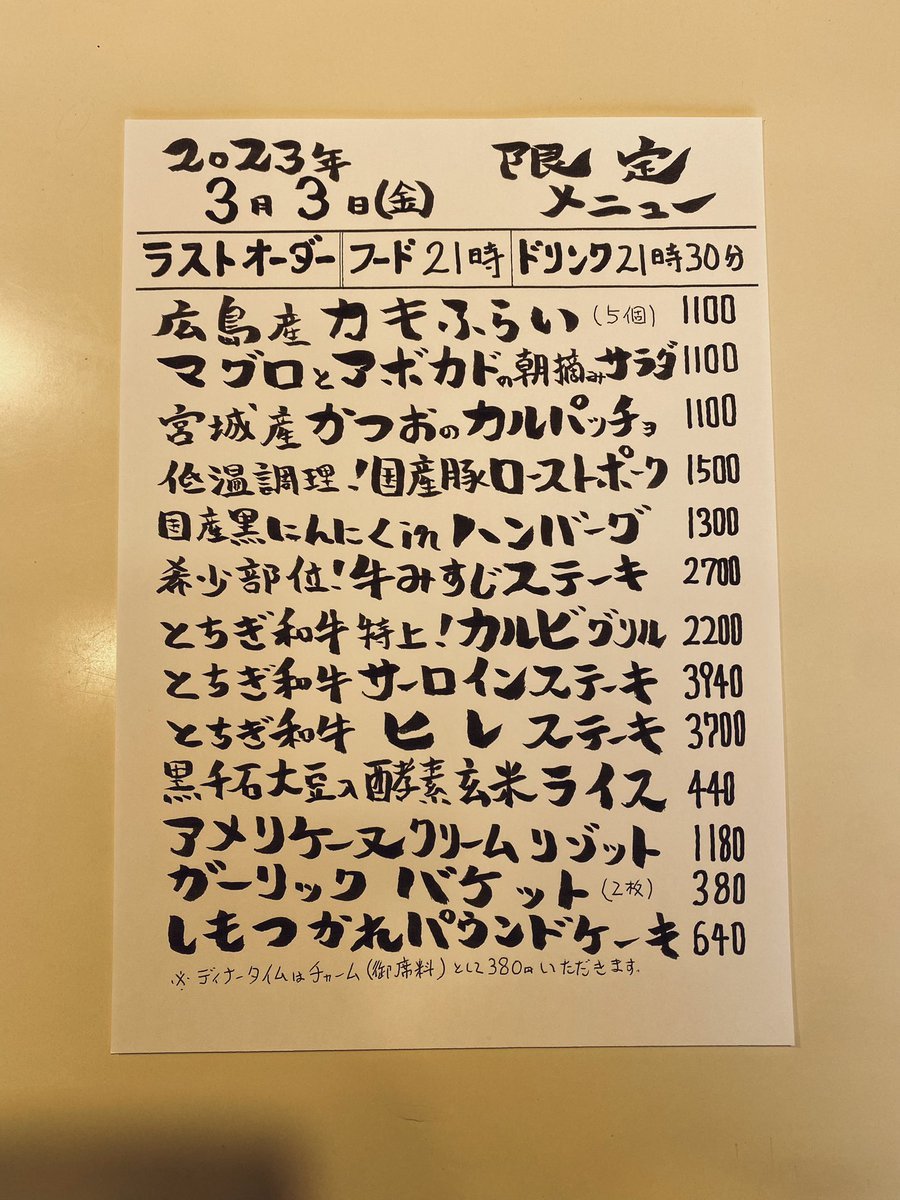 2023年 限定
3月3日(金) メニュー
ラストオーダー フード21時 ドリンク21時30分
広島産カキふらい(5個) 1100
マグロとアボカドの朝摘みサラダ 1100
宮城産かつおのカルパッチョ 1100
低温調理!国産豚ローストポーク 1500
国産黒にんにくinハンバーグ 1300
希少部位!牛みすじステーキ 2700
とちぎ和牛特上!カルビグリル 2200
とちぎ和牛サーロインステーキ 3940
とちぎ和牛ヒレステーキ 3700
黒千石大豆入酵素玄米ライス 440
アメリケーヌクリームリゾット 1180
ガーリックバケット(2枚) 380
しもつかれパウンドケーキ 640
※ディナータイムはチャーム(御席料)として380円いただきます。